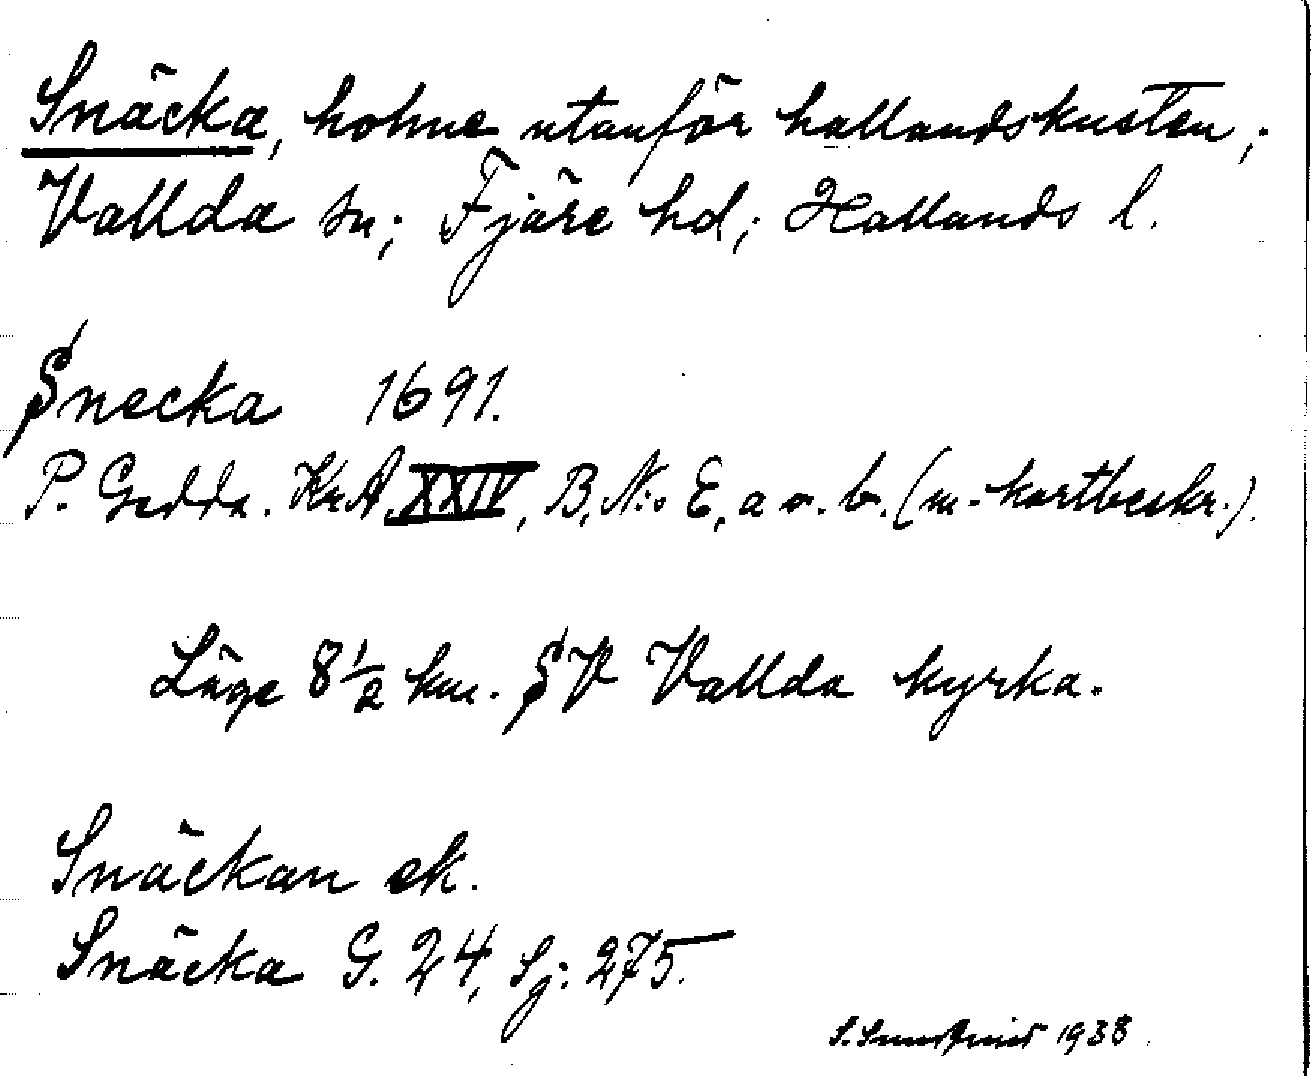 Snäcka, holme utanför hallandskusten;
Vallda sn; Fjäre hd; Hallands l.
Snecka 1691.
P. Gedda. Kr.A. XXIV, B, N:o E, a o. b. (m. kartbeskr.).
Läge 8 1/2 km. SV Vallda kyrka.
Snäckan ek.
Snäcka G. 24, Sj: 275.
1938